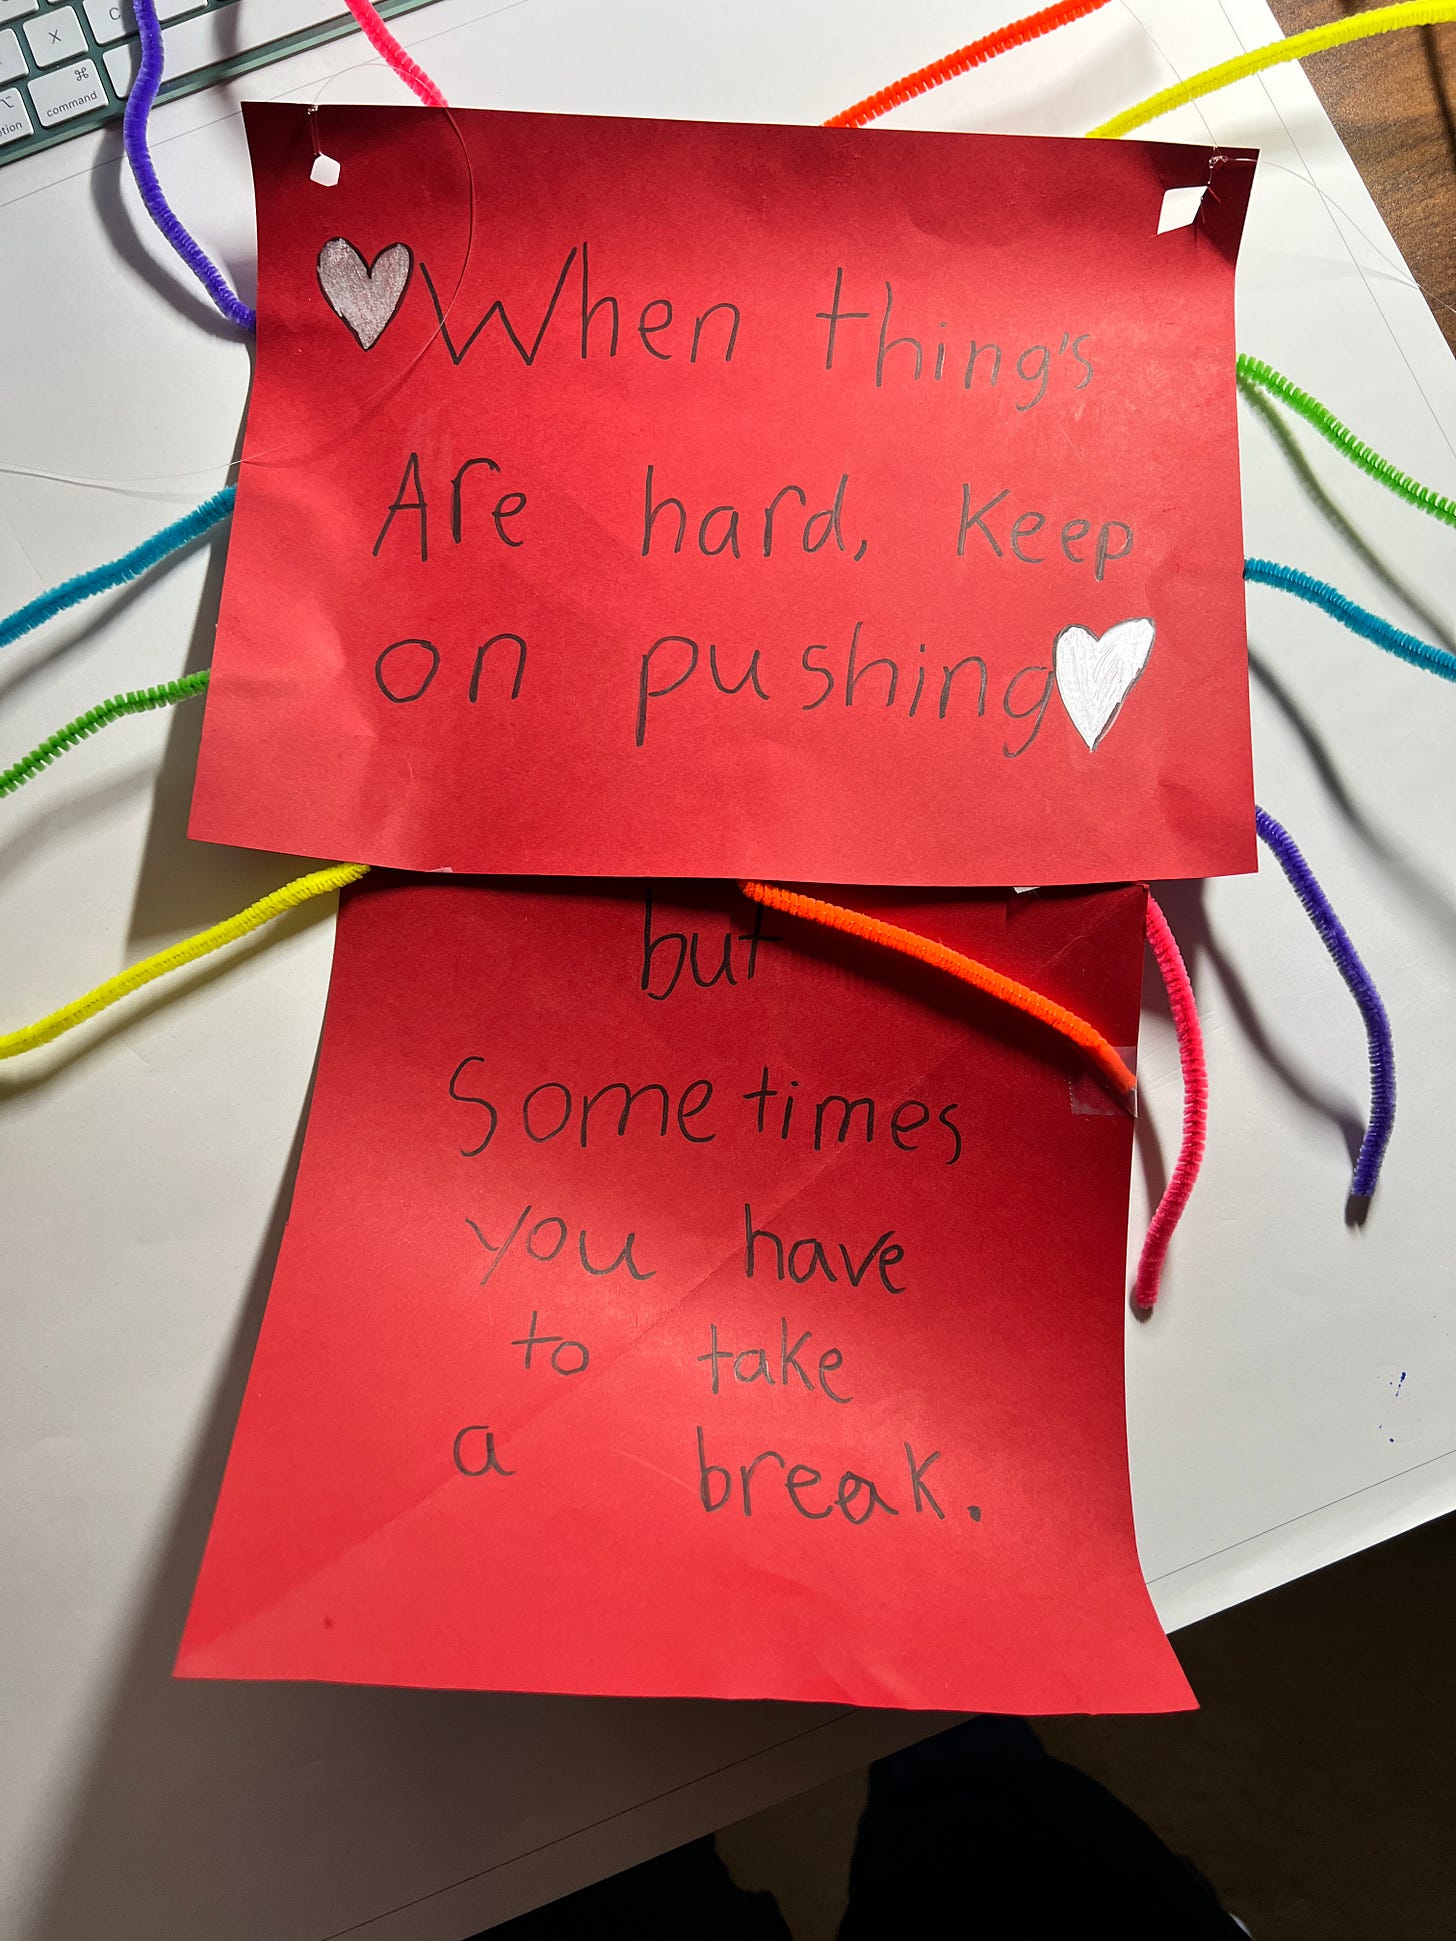 X
C
⌘
command
⌥
ption
When thing's
Are hard, Keep
on pushing
but
Sometimes
you have
to take
a break.